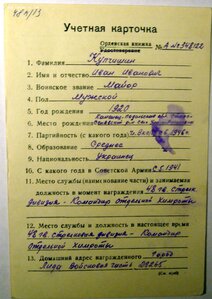 48п/13
Учетная карточка
Орденская книжка
Удостоверение № А № 348122
1. Фамилия Купчишин
2. Имя и отчество Иван Иванович
3. Воинское звание Майор
4. Пол Мужской
5. Год рождения 1920
6. Место рождения
7. Партийность (с какого года) 1946 г.
8. Образование Среднее
9. Национальность Украинец
10. С какого года в Советской Армии С 1941
11. Место службы (наименование части) и занимаемая
должность в момент награждения 48 гв. стрелк.
дивизия - Командир отдельной химроты
12. Место службы и должность в настоящее время
48 гв. стрелковая дивизия - Командир
отдельной химроты
13. Домашний адрес награжденного Город
Лида Войсковая часть
(См. на об.)